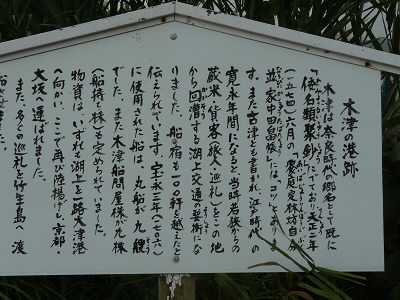 木津の港跡
木津は奈良時代の郷名として既に
「倭名類聚鈔」にでており、天正二年
(一五七四)六月の、饗庭定林坊自分
並家中田畠帳には、コツとあり
ます。また古津とも書かれ、江戸時代の
寛永年間になると、当時若狭からの
蔵米・貨客(旅人・巡礼)をこの地
から回漕する湖上交通の要衝にな
りました。船宿も一〇〇軒を越えたと
伝えられています。宝永三年(一七〇六)
に使用された船は、丸船が九艘
でした。また木津船問屋株が九株
(船持ち株)も定められていました。
物資は、いずれも湖上を一路大津港
へ向かい、ここで再び陸揚げし、京都・
大坂へ運ばれました。
また、多くの巡礼を竹生島へ渡